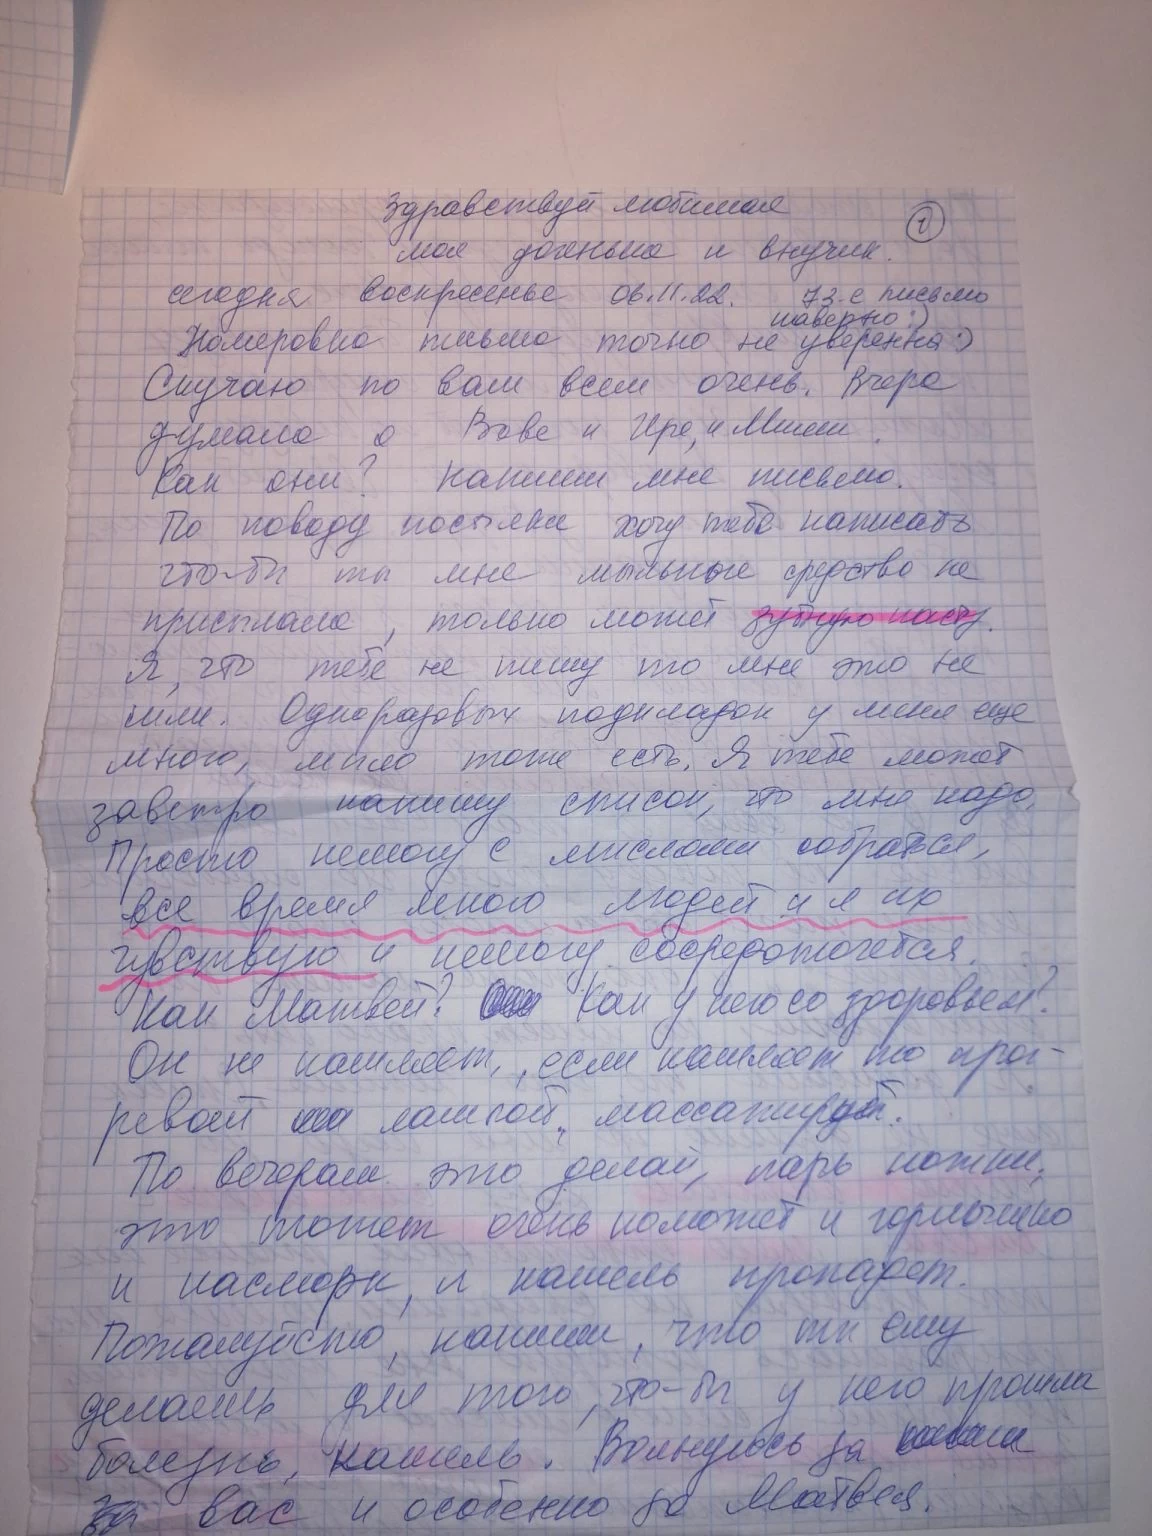 Здравствуй любимая
моя доченька и внучик. 1
сегодня воскресенье 06.11.22. 73-е письмо
наверно :)
Номеровка письма точно не уверенна :)
Скучаю по вам всем очень. Вчера
думала о Вове и Ире, и Миши.
Как они? Напиши мне письмо.
По поводу посылки хочу тебе написать
что-бы ты мне мыльные средства не
присылала, только может зубную пасту.
Я, что тебе не пишу то мне это не
шли. Одноразовых подкладок у меня еще
много, мыло тоже есть. Я тебе может
завтра напишу список, что мне надо.
Просто немогу с мыслями собратся,
все время много людей и я их
чувствую и немогу сосредоточется.
Как Матвей? Как у него со здоровьем?
Он не кашляет, если кашляет то прог-
ревай лампой, массажируй.
По вечерам это делай, парь ножки,
это может очень поможет и горлышко
и насморк, и кашель пропадет.
Пожалуйста, напиши, что ты ему
делаешь для того, что-бы у него прошла
болезнь, кашель. Волнуюсь за
вас и особенно за Матвея.